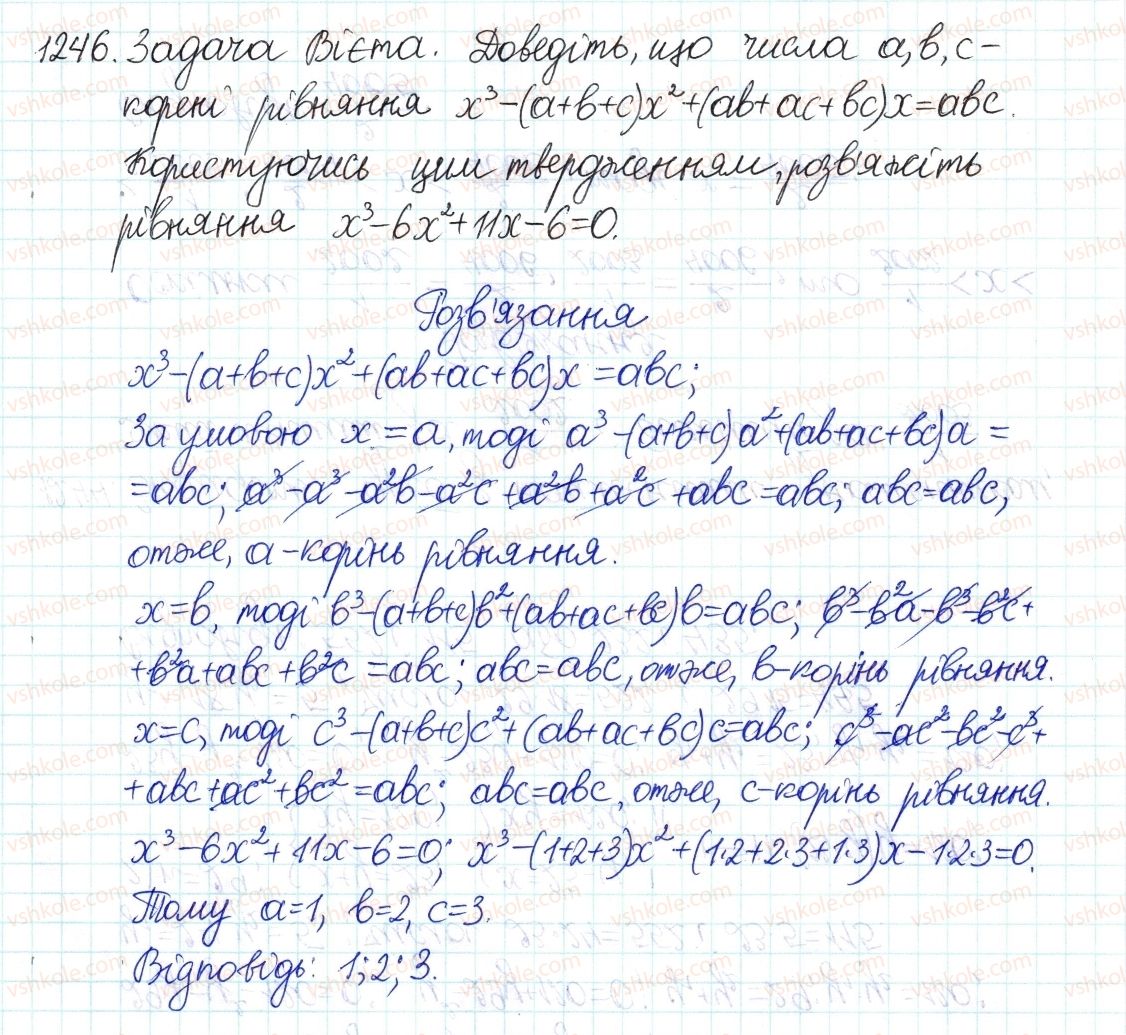 1246. Задача Вієта. Доведіть, що числа a, b, c –
корені рівняння x³-(a+b+c)x²+(ab+ac+bc)x=abc.
Користуючись цим твердженням, розв'яжіть
рівняння x³-6x²+11x-6=0.
Розв'язання
x³-(a+b+c)x²+(ab+ac+bc)x=abc;
За умовою x=a, тоді a³-(a+b+c)a²+(ab+ac+bc)a=
=abc; a³-a³-a²b-a²c+a²b+a²c+abc=abc; abc=abc,
отже, a-корінь рівняння.
x=b, тоді b³-(a+b+c)b²+(ab+ac+bc)b=abc; b³-b²a-b³-b²c+
+b²a+abc+b²c=abc; abc=abc, отже, b-корінь рівняння.
x=c, тоді c³-(a+b+c)c²+(ab+ac+bc)c=abc; c³-ac²-bc²-c³+
+abc+ac²+bc²=abc; abc=abc, отже, c-корінь рівняння.
x³-6x²+11x-6=0; x³-(1+2+3)x²+(1·2+2·3+1·3)x-1·2·3=0.
Тому a=1, b=2, c=3.
Відповідь: 1; 2; 3.